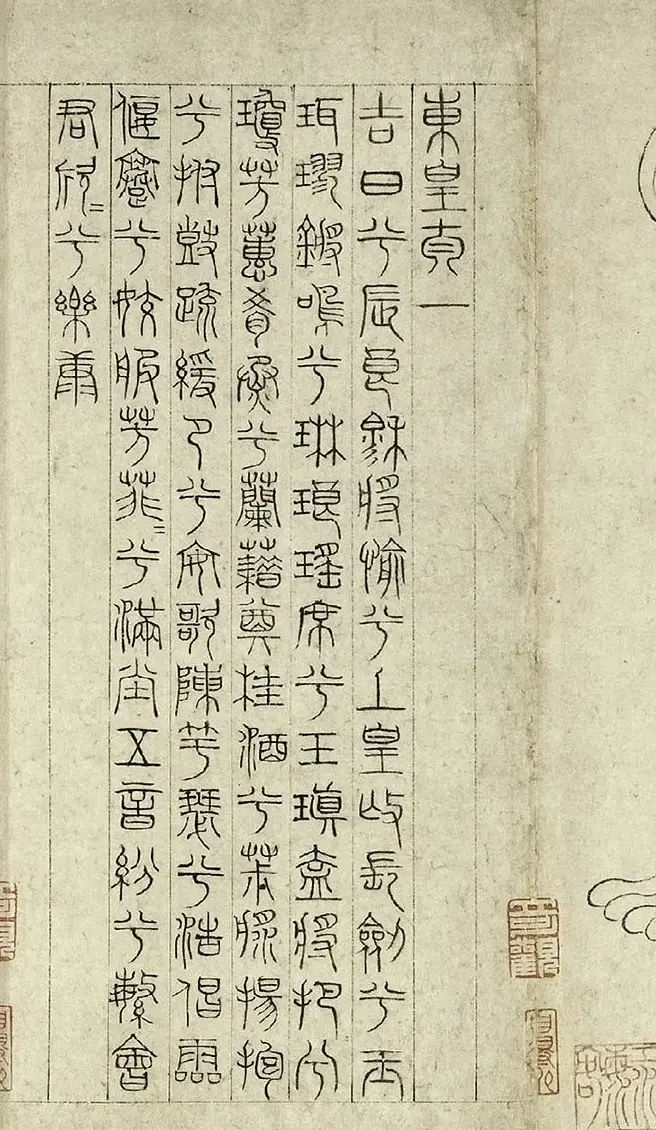 東皇太一
吉日兮辰良穆將愉兮上皇撫長劍兮玉
珥璆鏘鳴兮琳琅瑤席兮玉瑱盍將把兮
瓊芳蕙肴烝兮蘭藉奠桂酒兮椒漿揚枹
兮拊鼓疏緩節兮安歌陳竽瑟兮浩倡靈
偃蹇兮姣服芳菲〻兮滿堂五音紛兮繁會
君欣〻兮樂康